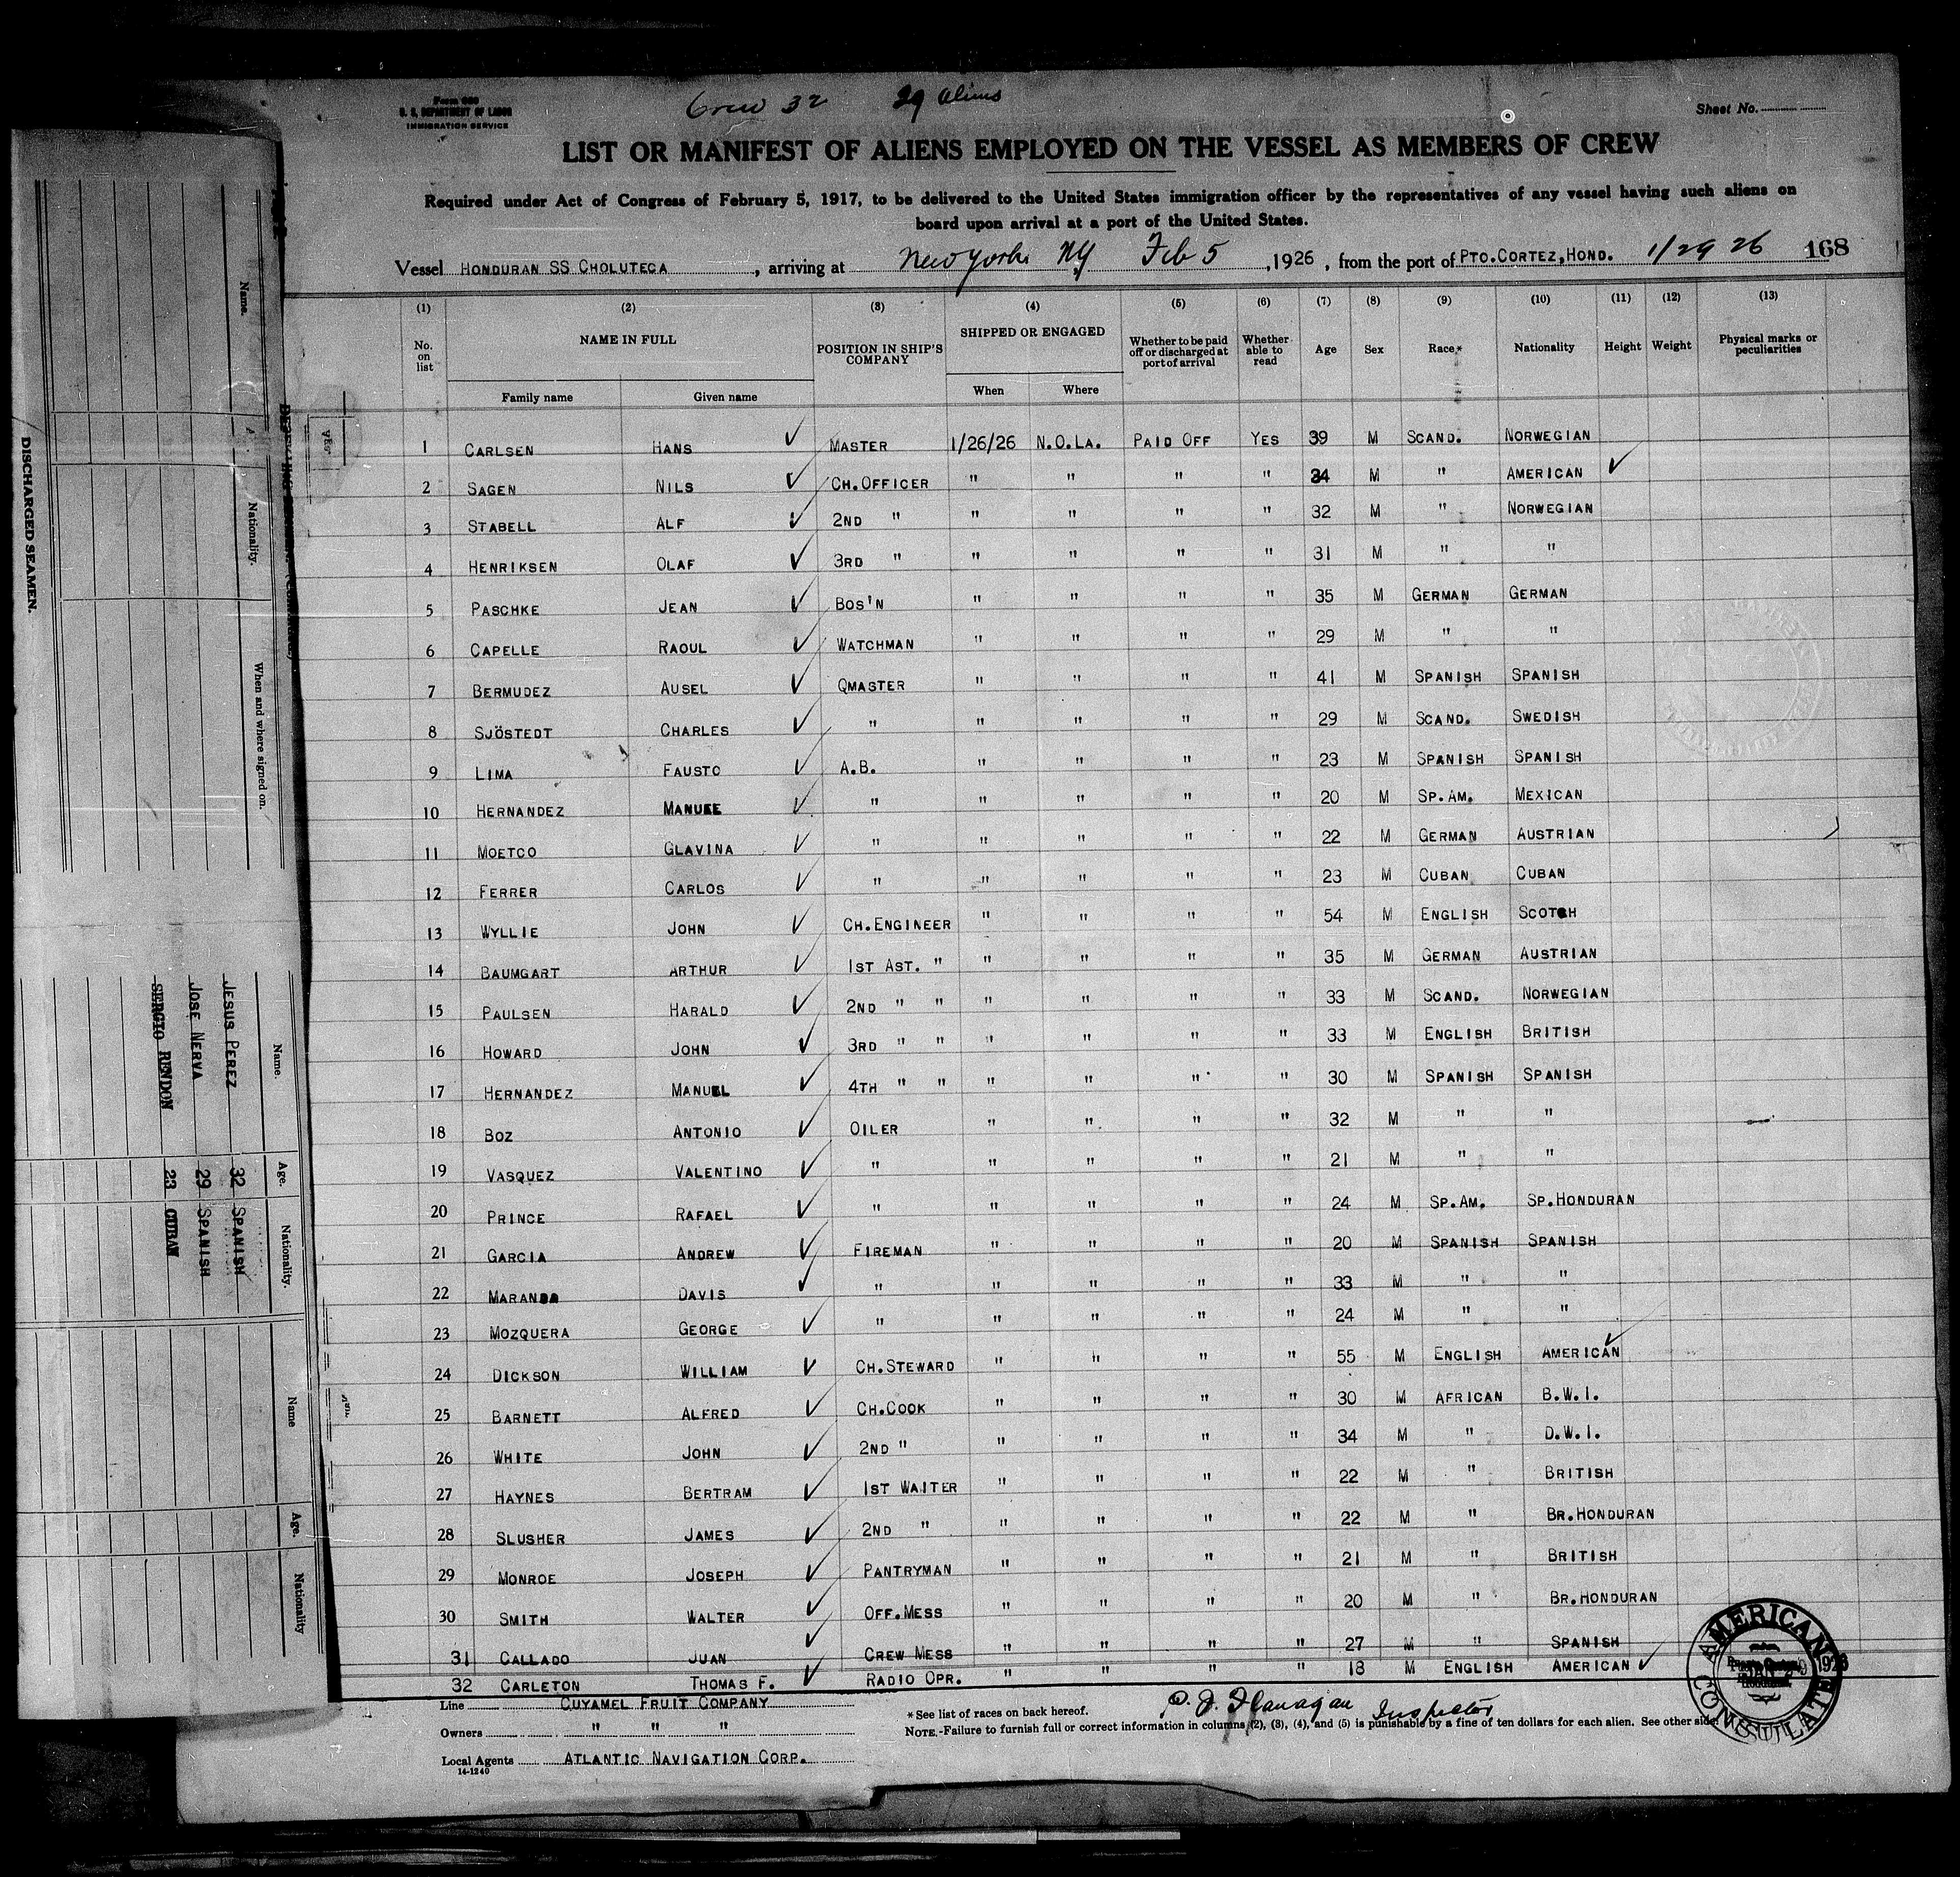 Crew 32 29 Aliens
Form 689
U. S. DEPARTMENT OF LABOR
IMMIGRATION SERVICE
Sheet No.
LIST OR MANIFEST OF ALIENS EMPLOYED ON THE VESSEL AS MEMBERS OF CREW
Required under Act of Congress of February 5, 1917, to be delivered to the United States immigration officer by the representatives of any vessel having such aliens on
board upon arrival at a port of the United States.
Vessel HONDURAN SS CHOLUTECA, arriving at New York NY Feb 5, 1926, from the port of PTO.CORTEZ,HOND. 1/29 26 168
(1) (2) (3) (4) (5) (6) (7) (8) (9) (10) (11) (12) (13)
No. on list NAME IN FULL Family name Given name POSITION IN SHIP'S COMPANY SHIPPED OR ENGAGED When Where Whether to be paid off or discharged at port of arrival Whether able to read Age Sex Race* Nationality Height Weight Physical marks or peculiarities
1 CARLSEN HANS ✓ MASTER 1/26/26 N.O.LA. PAID OFF YES 39 M SCAND. NORWEGIAN
2 SAGEN NILS ✓ CH.OFFICER " " " " 34 M " AMERICAN ✓
3 STABELL ALF ✓ 2ND " " " " " 32 M " NORWEGIAN
4 HENRIKSEN OLAF ✓ 3RD " " " " " 31 M " "
5 PASCHKE JEAN ✓ BOS'N " " " " 35 M GERMAN GERMAN
6 CAPELLE RAOUL ✓ WATCHMAN " " " " 29 M " "
7 BERMUDEZ AUSEL ✓ QMASTER " " " " 41 M SPANISH SPANISH
8 SJÖSTEDT CHARLES ✓ " " " " " 29 M SCAND. SWEDISH
9 LIMA FAUSTO ✓ A.B. " " " " 23 M SPANISH SPANISH
10 HERNANDEZ MANUEL ✓ " " " " " 20 M SP.AM. MEXICAN
11 MOETCO GLAVINA ✓ " " " " " 22 M GERMAN AUSTRIAN
12 FERRER CARLOS ✓ " " " " " 23 M CUBAN CUBAN
13 WYLLIE JOHN ✓ CH.ENGINEER " " " " 54 M ENGLISH SCOTCH
14 BAUMGART ARTHUR ✓ 1ST AST. " " " " " 35 M GERMAN AUSTRIAN
15 PAULSEN HARALD ✓ 2ND " " " " " " 33 M SCAND. NORWEGIAN
16 HOWARD JOHN ✓ 3RD " " " " " " 33 M ENGLISH BRITISH
17 HERNANDEZ MANUEL ✓ 4TH " " " " " " 30 M SPANISH SPANISH
18 BOZ ANTONIO ✓ OILER " " " " 32 M " "
19 VASQUEZ VALENTINO ✓ " " " " " 21 M " "
20 PRINCE RAFAEL ✓ " " " " " 24 M SP.AM. SP.HONDURAN
21 GARCIA ANDREW ✓ FIREMAN " " " " 20 M SPANISH SPANISH
22 MARANDA DAVIS ✓ " " " " " 33 M " "
23 MOZQUERA GEORGE ✓ " " " " " 24 M " "
24 DICKSON WILLIAM ✓ CH.STEWARD " " " " 55 M ENGLISH AMERICAN ✓
25 BARNETT ALFRED ✓ CH.COOK " " " " 30 M AFRICAN B.W.I.
26 WHITE JOHN ✓ 2ND " " " " " 34 M " D.W.I.
27 HAYNES BERTRAM ✓ 1ST WAITER " " " " 22 M " BRITISH
28 SLUSHER JAMES ✓ 2ND " " " " " 22 M " BR.HONDURAN
29 MONROE JOSEPH ✓ PANTRYMAN " " " " 21 M " BRITISH
30 SMITH WALTER ✓ OFF.MESS " " " " 20 M " BR.HONDURAN
31 CALLADO JUAN ✓ CREW MESS " " " " 27 M " SPANISH
32 CARLETON THOMAS F. ✓ RADIO OPR. " " " " 18 M ENGLISH AMERICAN ✓
Line CUYAMEL FRUIT COMPANY
Owners " " "
Local Agents ATLANTIC NAVIGATION CORP.
14-1240
*See list of races on back hereof.
P. J. Flanagan Inspector
NOTE.-Failure to furnish full or correct information in columns (2), (3), (4), and (5) is punishable by a fine of ten dollars for each alien. See other side.
AMERICAN CONSULATE
DISCHARGED SEAMEN.
Name.
Nationality.
When and where signed on.
Name. Age. Nationality.
JESUS PEREZ 32 SPANISH
JOSE NERVA 29 SPANISH
SERGIO RENDON 23 CUBAN
Name Age. Nationality